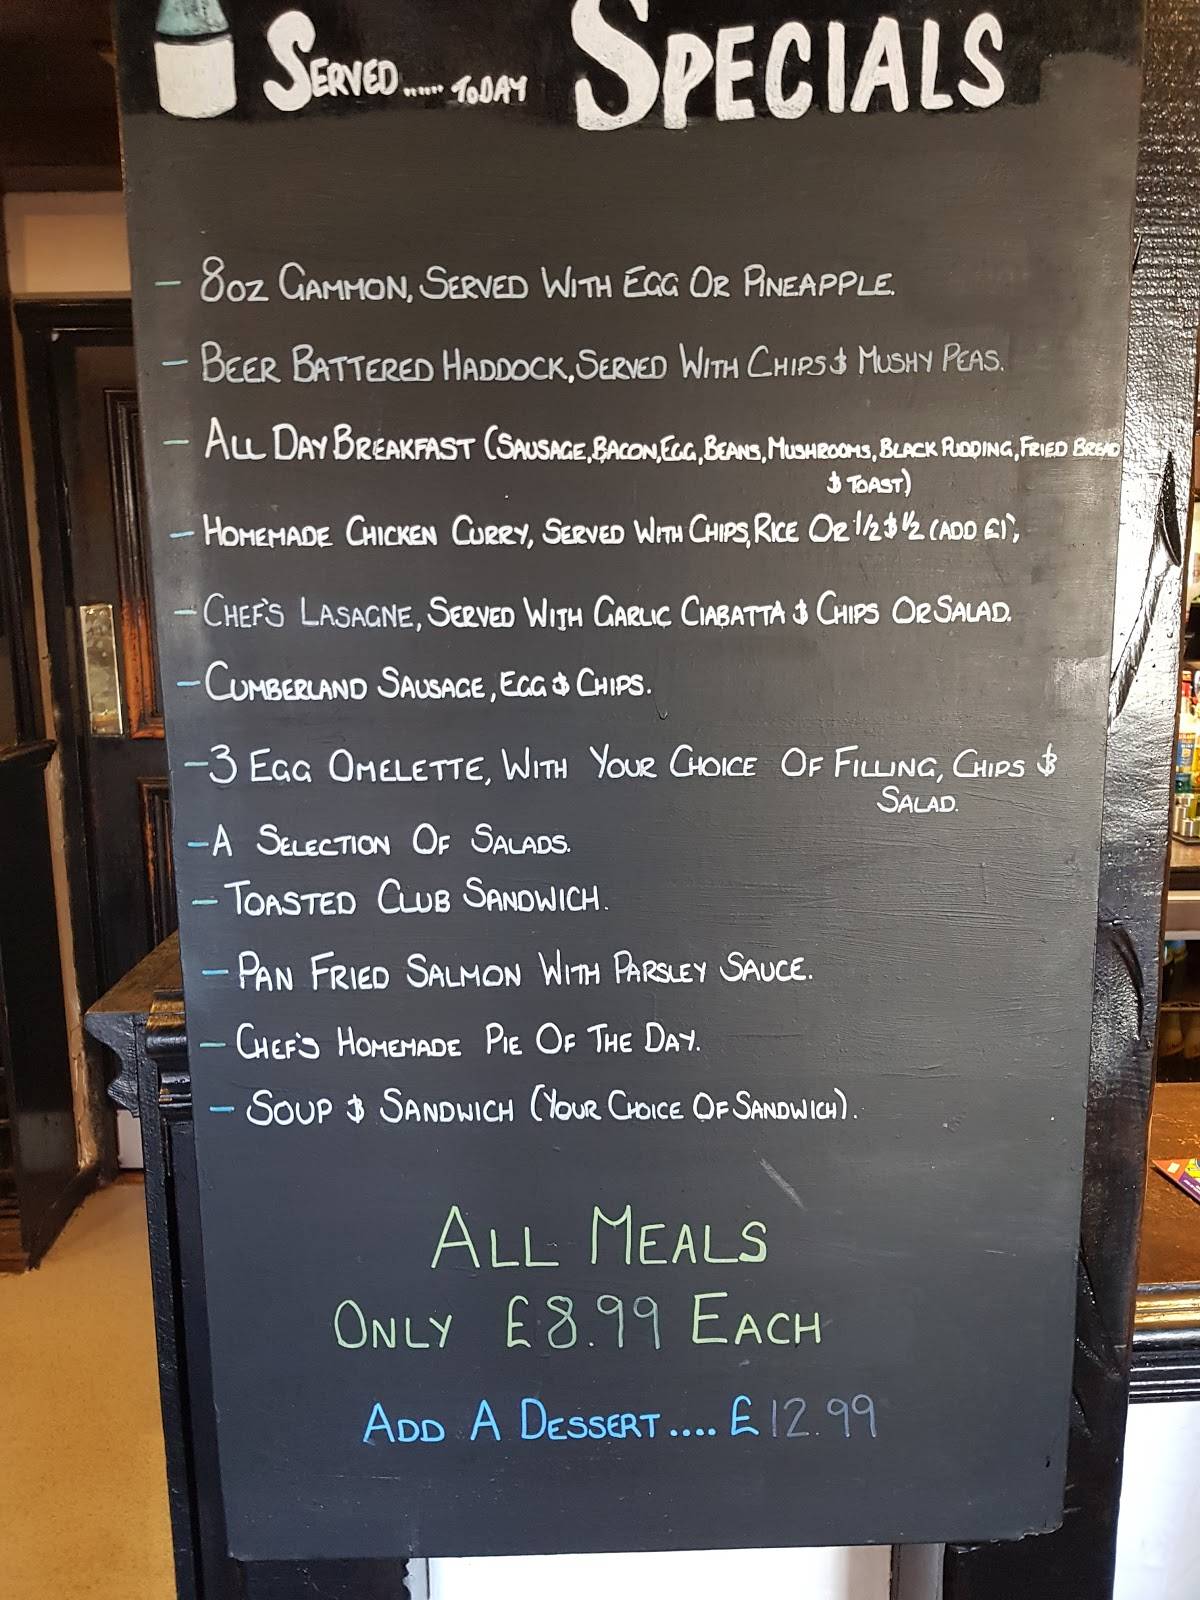 Served...... Today Specials
- 8oz Gammon, Served With Egg Or Pineapple.
- Beer Battered Haddock, Served With Chips & Mushy Peas.
- All Day Breakfast (Sausage, Bacon, Egg, Beans, Mushrooms, Black Pudding, Fried Bread
& Toast)
- Homemade Chicken Curry, Served With Chips, Rice Or 1/2 & 1/2 (Add £1),
- Chef's Lasagne, Served With Garlic Ciabatta & Chips Or Salad.
- Cumberland Sausage, Egg & Chips.
- 3 Egg Omelette, With Your Choice Of Filling, Chips &
Salad.
- A Selection Of Salads.
- Toasted Club Sandwich.
- Pan Fried Salmon With Parsley Sauce.
- Chef's Homemade Pie Of The Day.
- Soup & Sandwich (Your Choice Of Sandwich).
All Meals
Only £8.99 Each
Add A Dessert.... £12.99